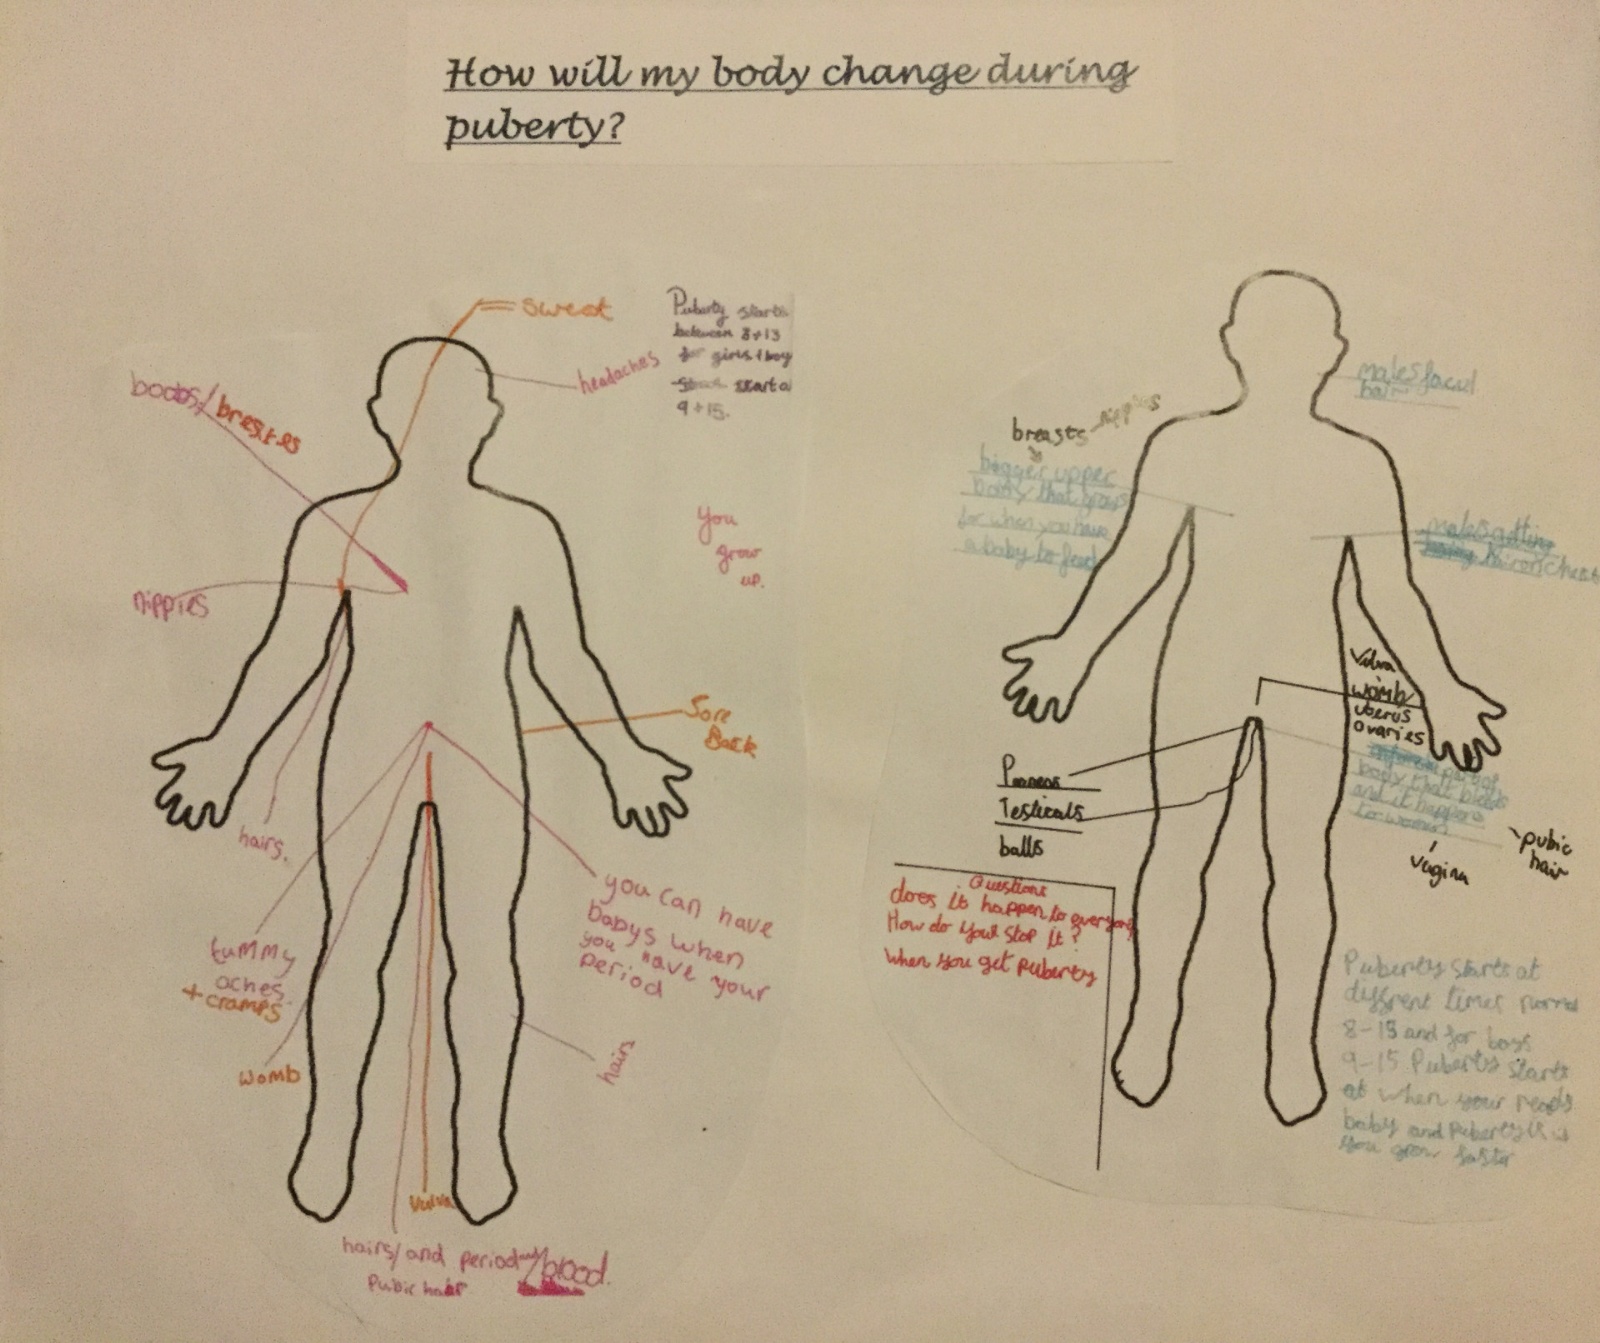 How will my body change during
puberty?
sweat
headaches
Puberty starts
between 8+13
for girls + boy
start a
9 + 15.
boobs/bresites
nipples
You
grow
up.
Sore
Back
hairs.
tummy
aches
+ cramps
womb
you can have
babys when
you have your
period
hairs
vulva
hairs/ and period and/blood.
Pubic hair
males facul
hair
breasts nipples
bigger upper
body that grows
for when you have
a baby to feed
males getting
hair on chest
Vulva
womb
uberus
ovaries
part of
body that bleeds
and it happens
to women
vagina
pubic
hair
Peeness
Testicals
balls
Questions
does it happen to everyone
How do you stop it?
When you get puberty
Puberty starts at
diffrent times normal
8-13 and for boys
9-15 Puberty starts
at when your ready
baby and puberty is
you grow faster